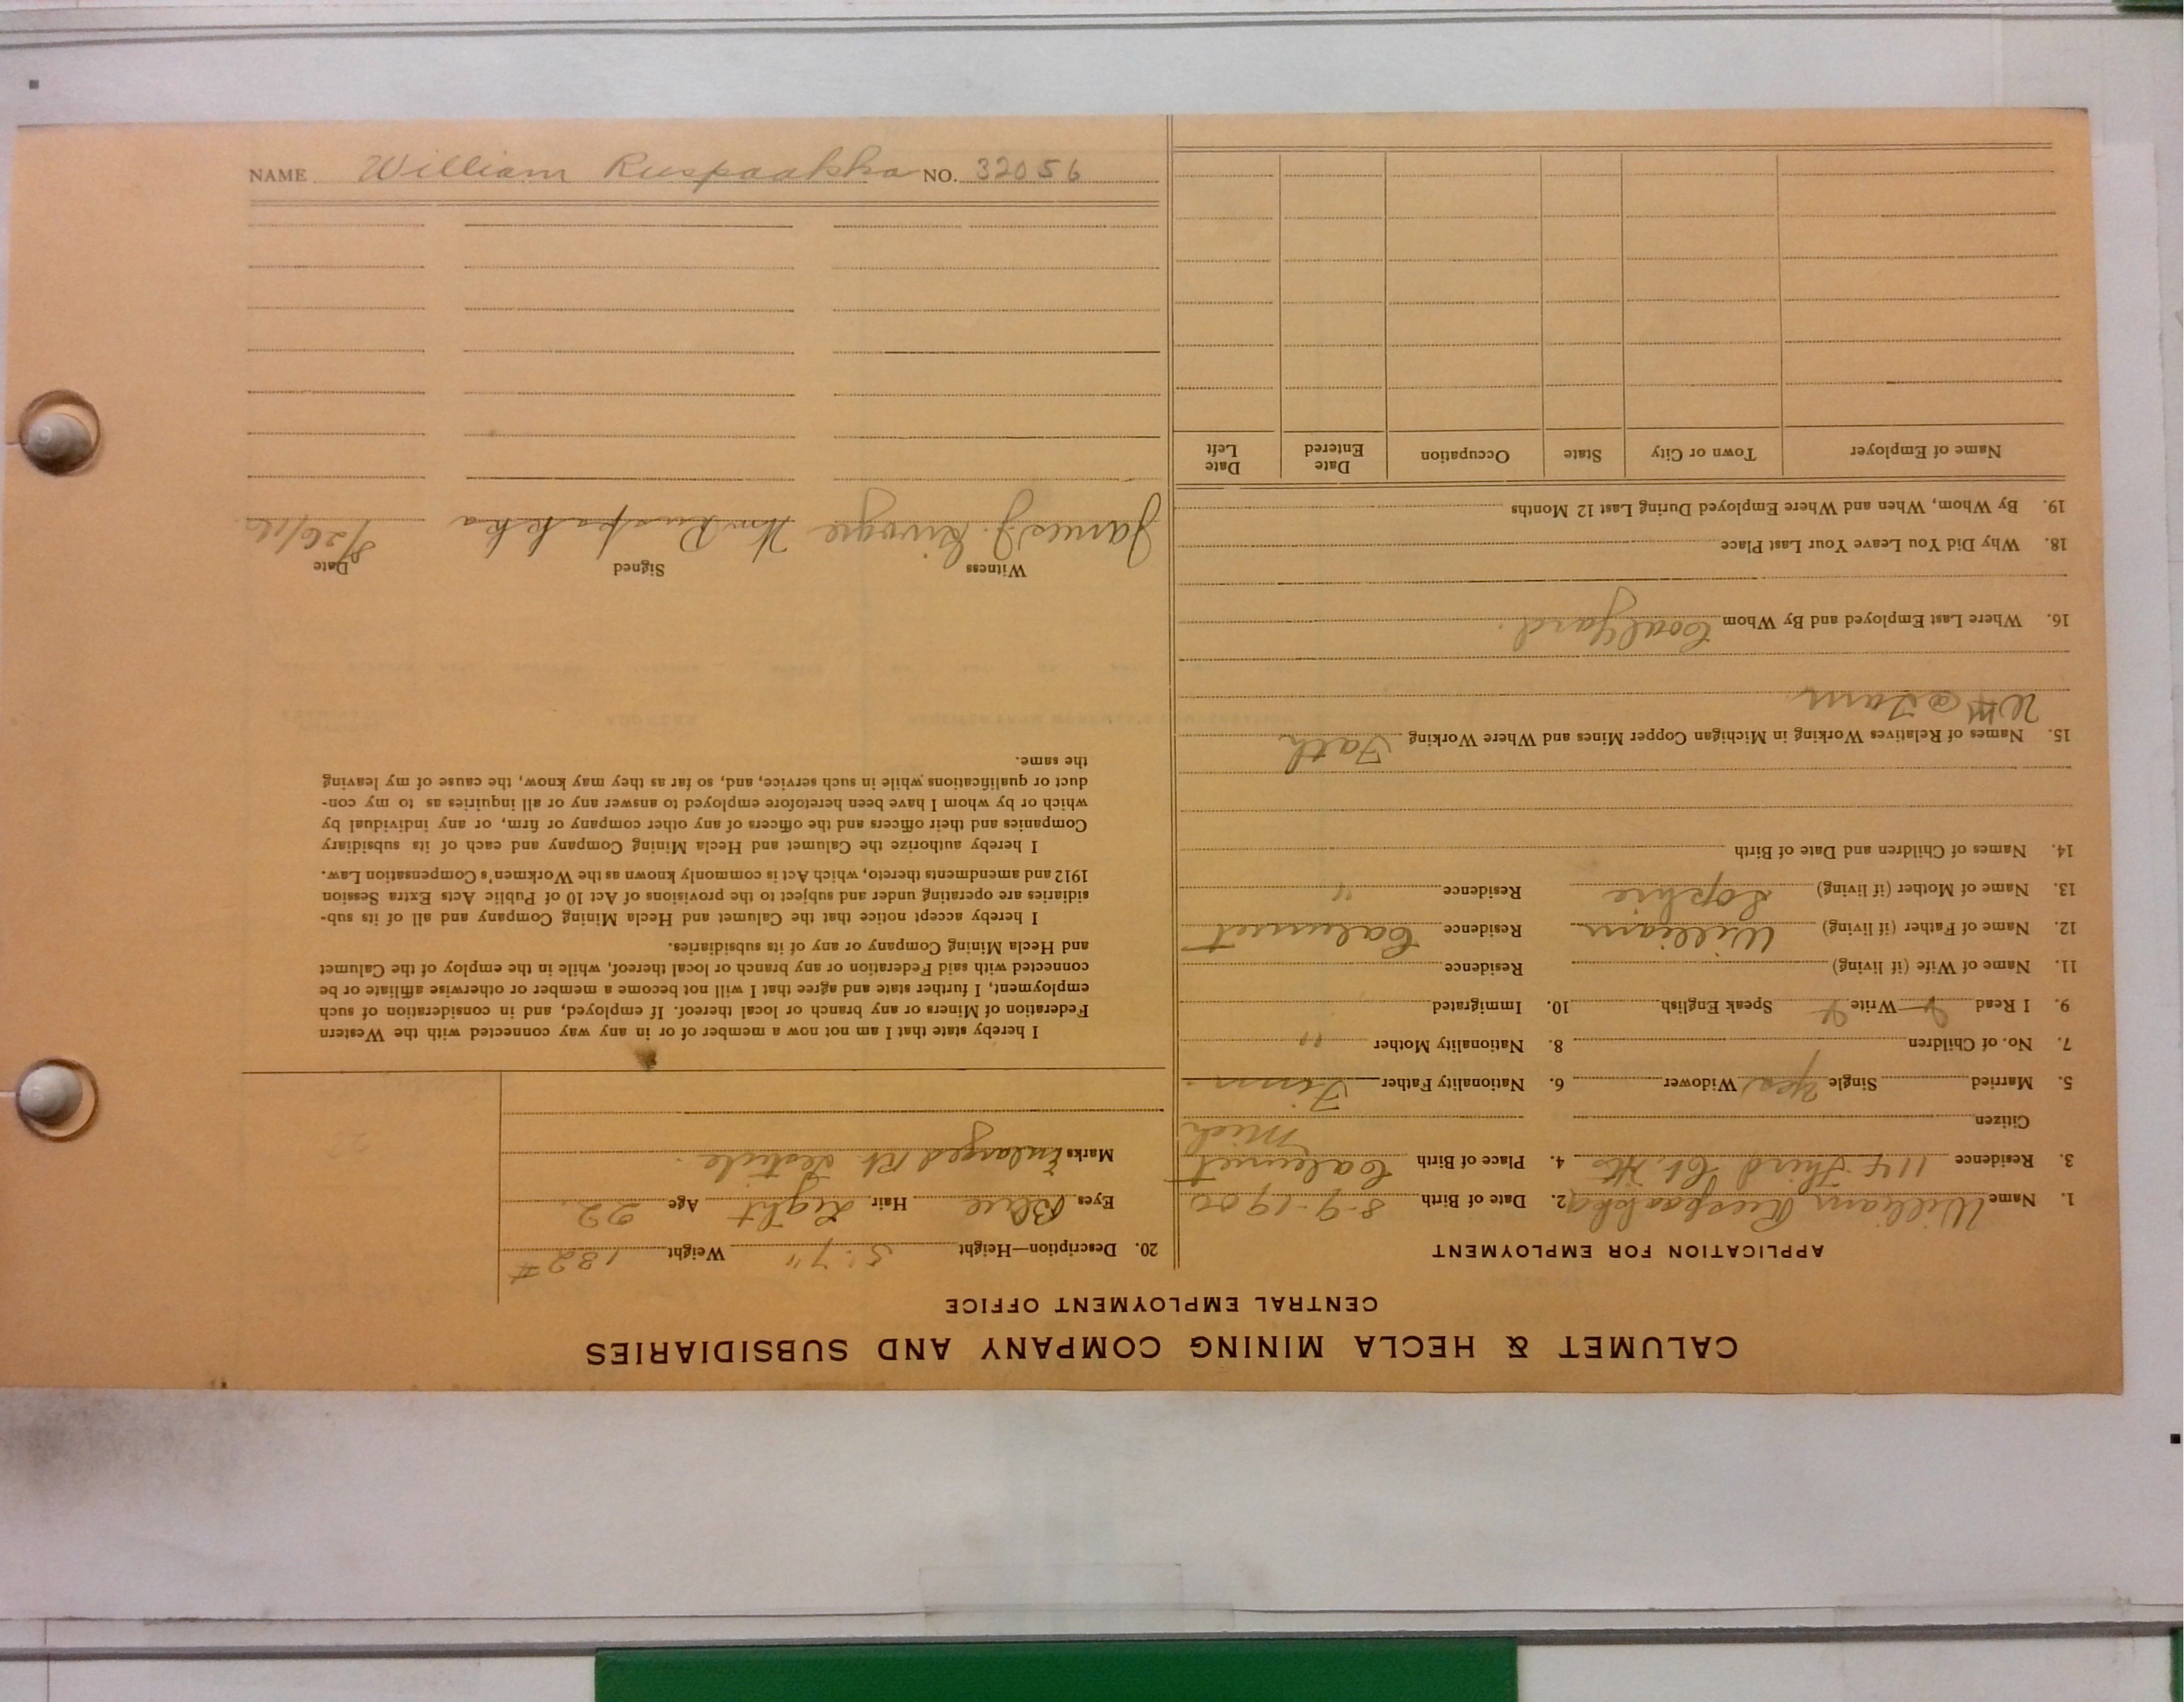 NAME William Ruspaakka NO. 32056
CALUMET & HECLA MINING COMPANY AND SUBSIDIARIES
CENTRAL EMPLOYMENT OFFICE
APPLICATION FOR EMPLOYMENT
1. Name William Ruspaakka 2. Date of Birth 8-9-1900
3. Residence 114 Third St. 4. Place of Birth Calumet
Mich
Citizen
5. Married Single yes Widower 6. Nationality Father Finn
7. No. of Children 8. Nationality Mother "
9. I Read Write Speak English 10. Immigrated
11. Name of Wife (if living) Residence
12. Name of Father (if living) William Residence Calumet
13. Name of Mother (if living) Sophie Residence "
14. Names of Children and Date of Birth
15. Names of Relatives Working in Michigan Copper Mines and Where Working Fath
Wm @ Tam
16. Where Last Employed and By Whom Coal Yard.
18. Why Did You Leave Your Last Place
19. By Whom, When and Where Employed During Last 12 Months
Name of Employer Town or City State Occupation Date Entered Date Left
20. Description—Height 5' 7" Weight 132 #
Eyes Blue Hair Light Age 22
Marks Enlarged Rt testicle.
I hereby state that I am not now a member of or in any way connected with the Western
Federation of Miners or any branch or local thereof. If employed, and in consideration of such
employment, I further state and agree that I will not become a member or otherwise affiliate or be
connected with said Federation or any branch or local thereof, while in the employ of the Calumet
and Hecla Mining Company or any of its subsidiaries.
I hereby accept notice that the Calumet and Hecla Mining Company and all of its sub-
sidiaries are operating under and subject to the provisions of Act 10 of Public Acts Extra Session
1912 and amendments thereto, which Act is commonly known as the Workmen's Compensation Law.
I hereby authorize the Calumet and Hecla Mining Company and each of its subsidiary
Companies and their officers and the officers of any other company or firm, or any individual by
which or by whom I have been heretofore employed to answer any or all inquiries as to my con-
duct or qualifications while in such service, and, so far as they may know, the cause of my leaving
the same.
Witness Signed Date
James J. Wm Ruspakka